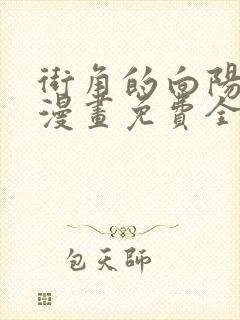 街角的向陽
漫畫免費全
包天師